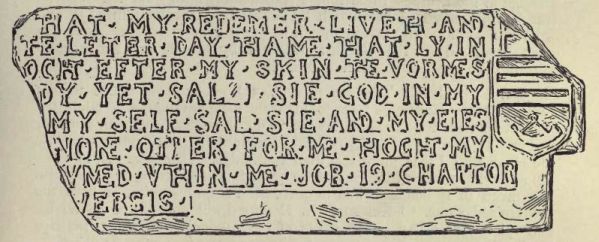 HAT · MY · REDEMER · LIVETH · AND
TE · LETER · DAY · THAME · THAT · LY · IN
OCHT · EFTER · MY · SKIN · THE · VORMES
DY · YET · SAL · I · SIE · GOD · IN · MY
MY · SELF · SAL · SIE · AND · MY · EIES
NONE · OTHER · FOR · ME · THOCHT · MY
VMED · VTHIN · ME · JOB · 19 · CHAPTOR
VERSIS ·